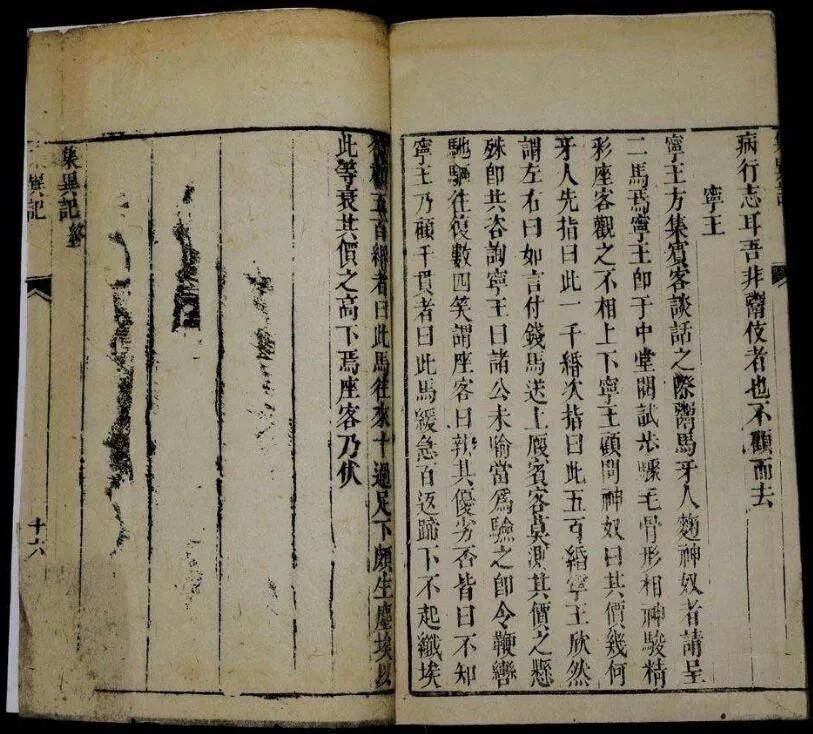 病行志耳吾非鬻伎者也不顧而去
寧王
寧王方集賓客談話之際鬻馬牙人麴神奴者請呈
二馬焉寧王即于中堂閱試步驟毛骨形相神駿精
彩座客觀之不相上下寧王顧問神奴曰其價幾何
牙人先指曰此一千緡次指曰此五百緡寧王欣然
謂左右曰如言付錢馬送上廄賓客莫測其價之懸
殊即共咨詢寧王曰諸公未喻當為驗之即令鞭轡
馳驅往復數四笑謂座客曰孰其優劣否皆曰不知
寧王乃顧千貫者曰此馬緩急百返蹄下不起纖埃
顧五百緡者曰此馬往來十過足下頗生塵埃以
此等衰其價之高下焉座客乃伏
集異記終
異記
十六